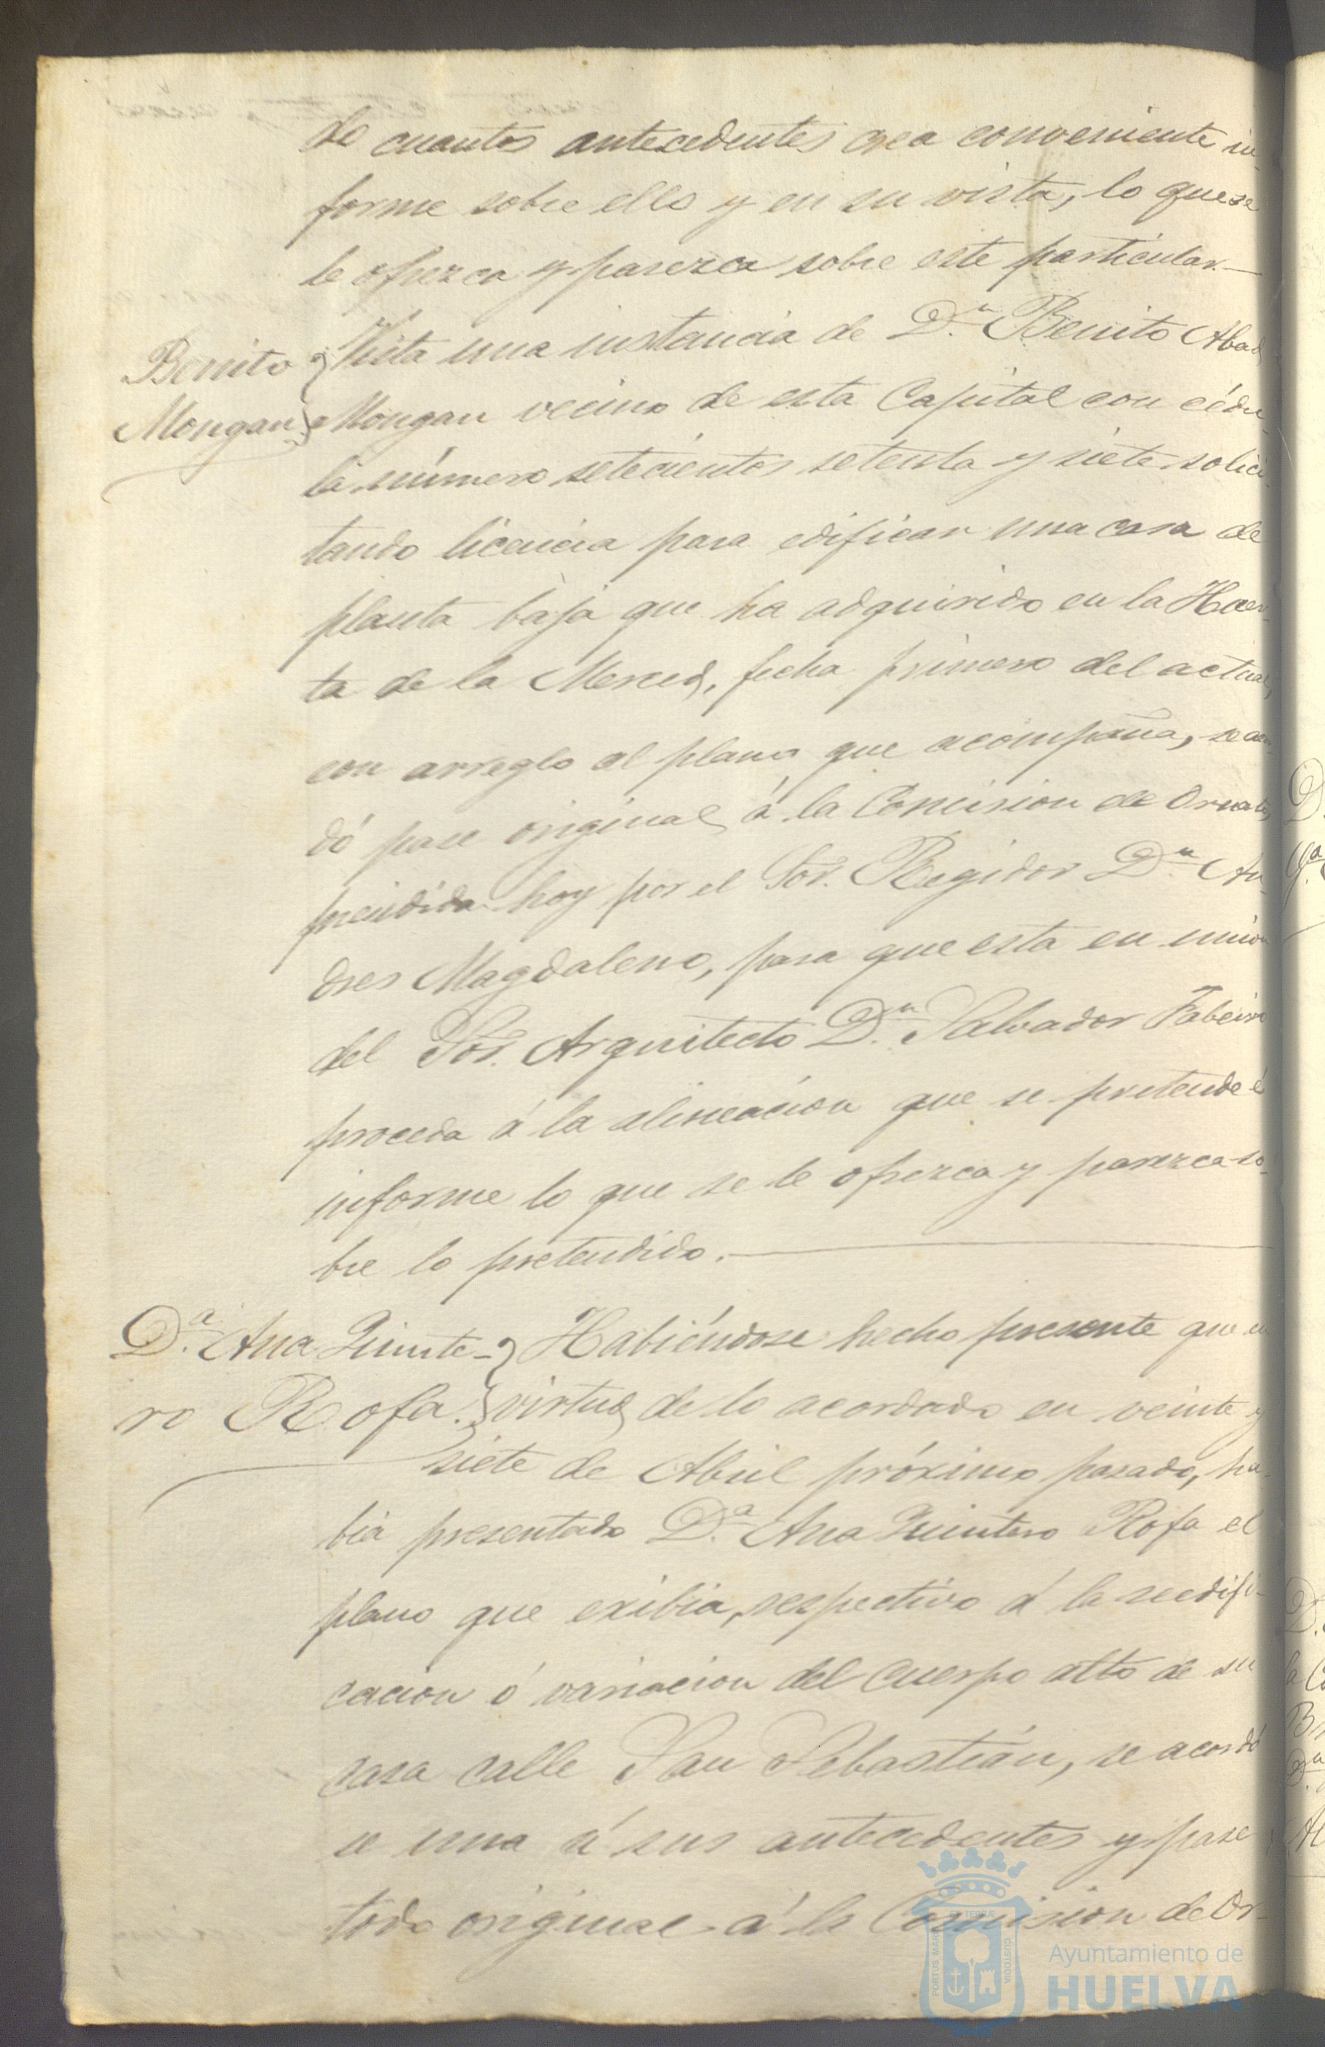 de cuantos antecedentes crea conveniente in-
forme sobre ello y en su vista, lo que se
le ofrezca y parezca sobre este particular.—
Benito } Vista una instancia de D.n Benito Abad
Mongan } Mongan vecino de esta Capital con cédu-
la número setecientos setenta y siete solici-
tando licencia para edificar una casa de
planta baja que ha adquirido en la Huer-
ta de la Merced, fecha primero del actual,
con arreglo al plano que acompaña, se acor
dó pase original á la Comision de Ornato,
precidida hoy por el Sor. Regidor D.n An-
dres Magdaleno, para que esta en union
del Sor. Arquitecto D.n Salvador
proceda á la alineacion que se pretende é
informe lo que se le ofrezca y parezca so-
bre lo pretendido.—
D.a Ana Quinte- } Habiéndose hecho presente que en
ro Rofa. } virtud de lo acordado en veinte y
siete de Abril próximo pasado, ha-
bia presentado D.a Ana Quintero Rofa el
plano que exibia, respectivo á la reedifi-
cacion ó variacion del cuerpo alto de su
casa calle San Sebastián, se acordó
se una á sus antecedentes y pase
todo original á la Comision de Or-
Ayuntamiento de
HUELVA
PORTUS MARIS ET TERRÆ CUSTODIA